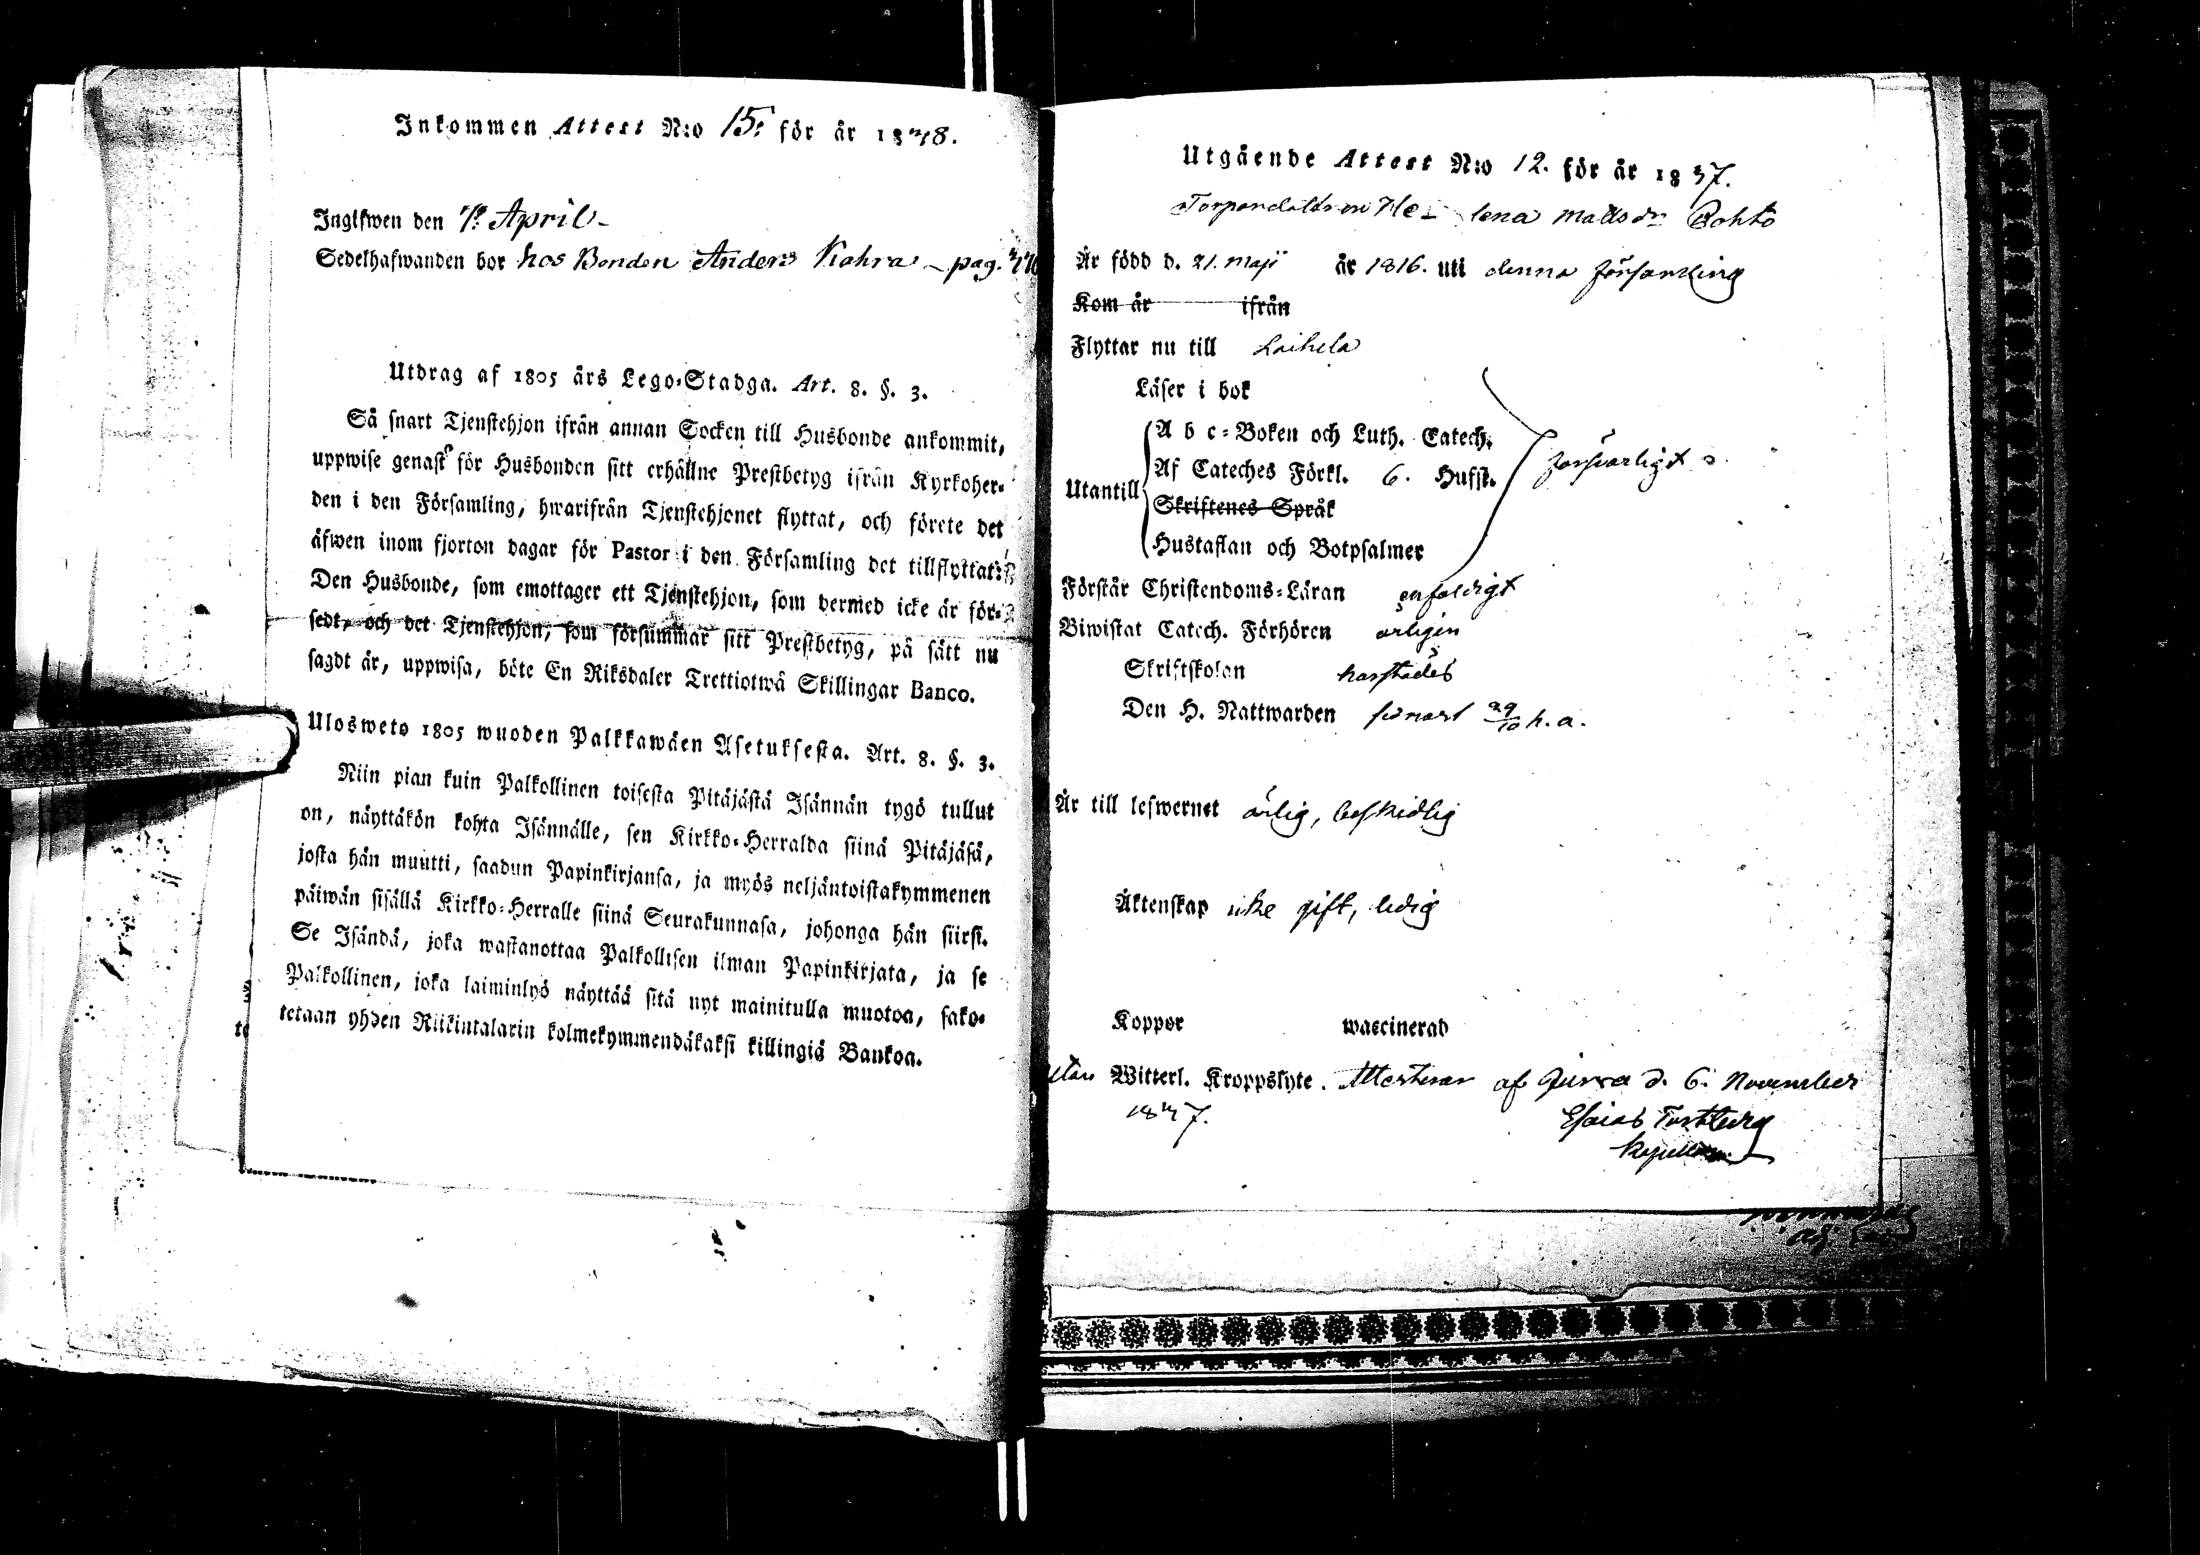 Inkommen Attest N:o 15: för år 1848.
Ingifwen den 7de April
Sedelhafwanden bor hos Bonden Anders Kahra pag.
Utdrag af 1805 års Lego-Stadga. Art. 8. §. 3.
Så snart Tjenstehjon ifrån annan Socken till Husbonde ankommit,
uppwise genast för Husbonden sitt erhållne Prestbetyg ifrån Kyrkoher-
den i den Församling, hwarifrån Tjenstehjonet flyttat, och förete det
äfwen inom fjorton dagar för Pastor i den Församling det tillflyttat.
Den Husbonde, som emottager ett Tjenstehjon, som dermed icke är för-
sedt, och det Tjenstehjon, som försummar sitt Prestbetyg, på sätt nu
sagdt är, uppwisa, böte En Riksdaler Trettiotwå Skillingar Banco.
Ulosweto 1805 wuoden Palkkawäen Asetuksesta. Art. 8. §. 3.
Niin pian kuin Palkollinen toisesta Pitäjästä Isännän tygö tullut
on, näyttäkön kohta Isännälle, sen Kirkko-Herralda siinä Pitäjäsä,
josta hän muutti, saadun Papinkirjansa, ja myös neljäntoistakymmenen
päiwän sisällä Kirkko-Herralle siinä Seurakunnasa, johonga hän siirsi.
Se Isändä, joka wastanottaa Palkollisen ilman Papinkirjata, ja se
Palkollinen, joka laiminlyö näyttää sitä nyt mainitulla muotoa, sako-
tetaan yhden Riikintalarin kolmekymmendäkaksi killingiä Bankoa.
Utgående Attest N:o 12. för år 1847.
Torpardottren Helena Mattsdr
Är född d. 21. Maji år 1816. uti denna församling
Kom år ifrån
Flyttar nu till Laihela
Läser i bok
A b c-Boken och Luth. Catech.
Af Cateches Förkl. 6. Hufst. försvarligt
Utantill
Skriftenes Språk
Hustaflan och Botpsalmer
Förstår Christendoms-Läran enfaldigt
Biwistat Catech. Förhören årligen
Skriftskolan härstädes
Den H. Nattwarden senast 29/10 h. a.
Är till lefwernet ärlig, beskedlig
Äktenskap icke gift, ledig
Koppor waccinerad
utan Witterl. Kroppslyte. Attesterar af Jurva d. 6. November
1847.
Esaias